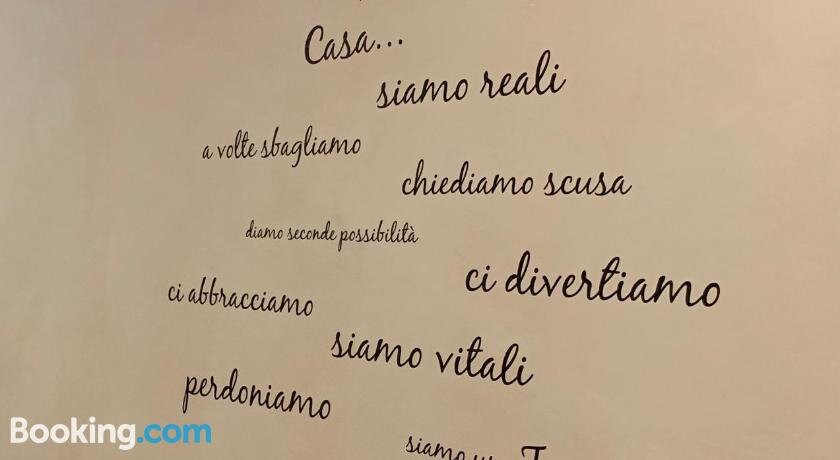 Casa...
siamo reali
a volte sbagliamo
chiediamo scusa
diamo seconde possibilità
ci divertiamo
ci abbracciamo
siamo vitali
perdoniamo
Booking.com
siamo